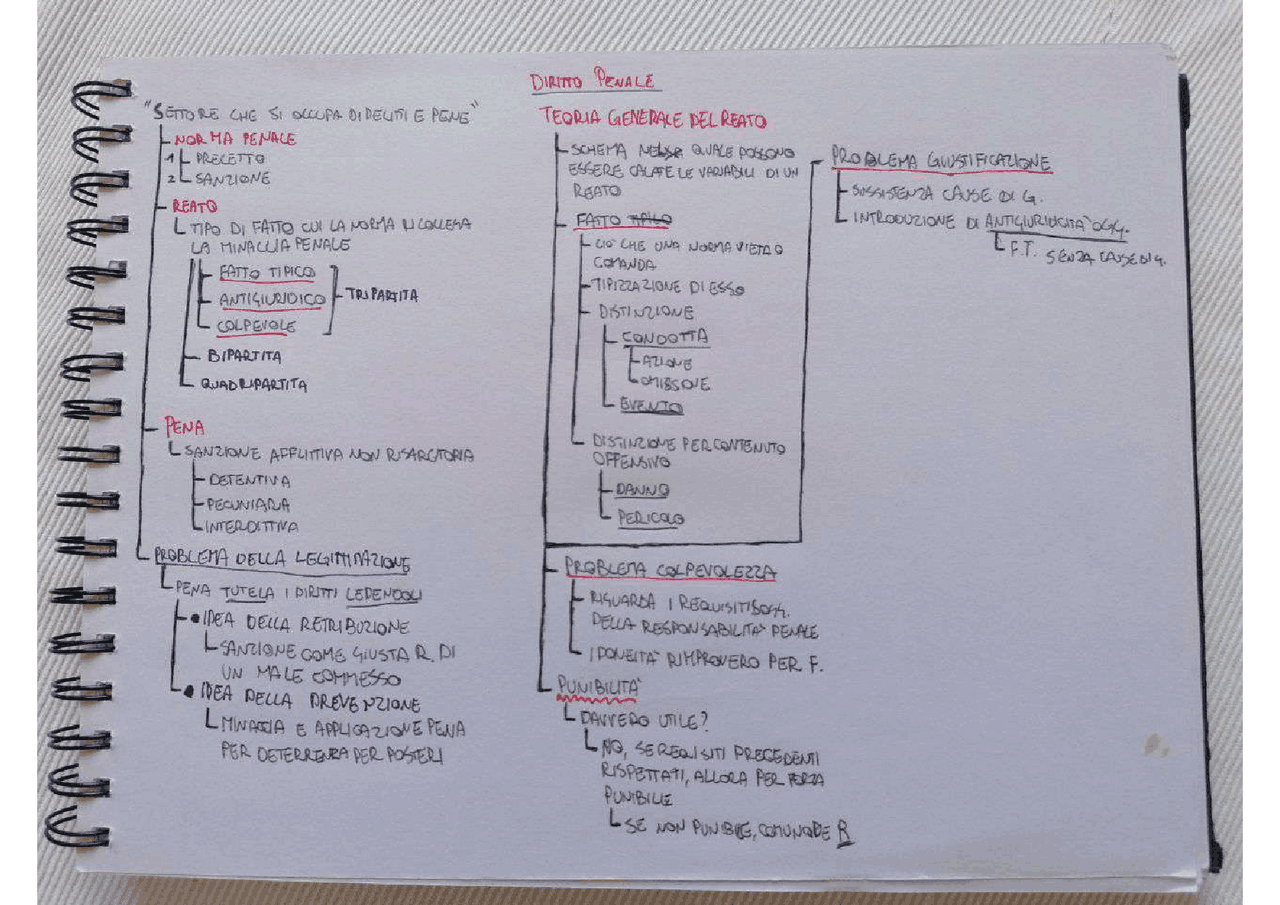 DIRITTO PENALE
"SETTORE CHE SI OCCUPA DI DELITTI E PENE"
NORMA PENALE
1 PRECETTO
2 SANZIONE
REATO
TIPO DI FATTO CUI LA NORMA RICOLLEGA
LA MINACCIA PENALE
FATTO TIPICO
ANTIGIURIDICO
COLPEVOLE
TRIPARTITA
BIPARTITA
QUADRIPARTITA
PENA
SANZIONE AFFLITTIVA NON RISARCITORIA
DETENTIVA
PECUNIARIA
INTERDITTIVA
PROBLEMA DELLA LEGITTIMAZIONE
PENA TUTELA I DIRITTI LEDENDOLI
IDEA DELLA RETRIBUZIONE
SANZIONE COME GIUSTA R. DI
UN MALE COMMESSO
IDEA DELLA PREVENZIONE
MINACCIA E APPLICAZIONE PENA
PER DETERRENZA PER POSTERI
TEORIA GENERALE DEL REATO
SCHEMA QUALE POSSONO
ESSERE CALATE LE VARIABILI DI UN
REATO
FATTO TIPICO
CIO' CHE UNA NORMA VIETA O
COMANDA
TIPIZZAZIONE DI ESSO
DISTINZIONE
CONDOTTA
AZIONE
OMISSONE
EVENTO
DISTINZIONE PER CONTENUTO
OFFENSIVO
DANNO
PERICOLO
PROBLEMA GIUSTIFICAZIONE
SUSSISTENZA CAUSE DI G.
INTRODUZIONE DI ANTIGIURIDICITA' OGG.
F.T. SENZA CAUSE DI G.
PROBLEMA COLPEVOLEZZA
RIGUARDA I REQUISITI SOGG.
DELLA RESPONSABILITA' PENALE
IDONEITA' RIMPROVERO PER F.
PUNIBILITA'
DAVVERO UTILE?
NO, SE REQUISITI PRECEDENTI
RISPETTATI, ALLORA PER FORZA
PUNIBILE
SE NON PUNIBILE, COMUNQUE R